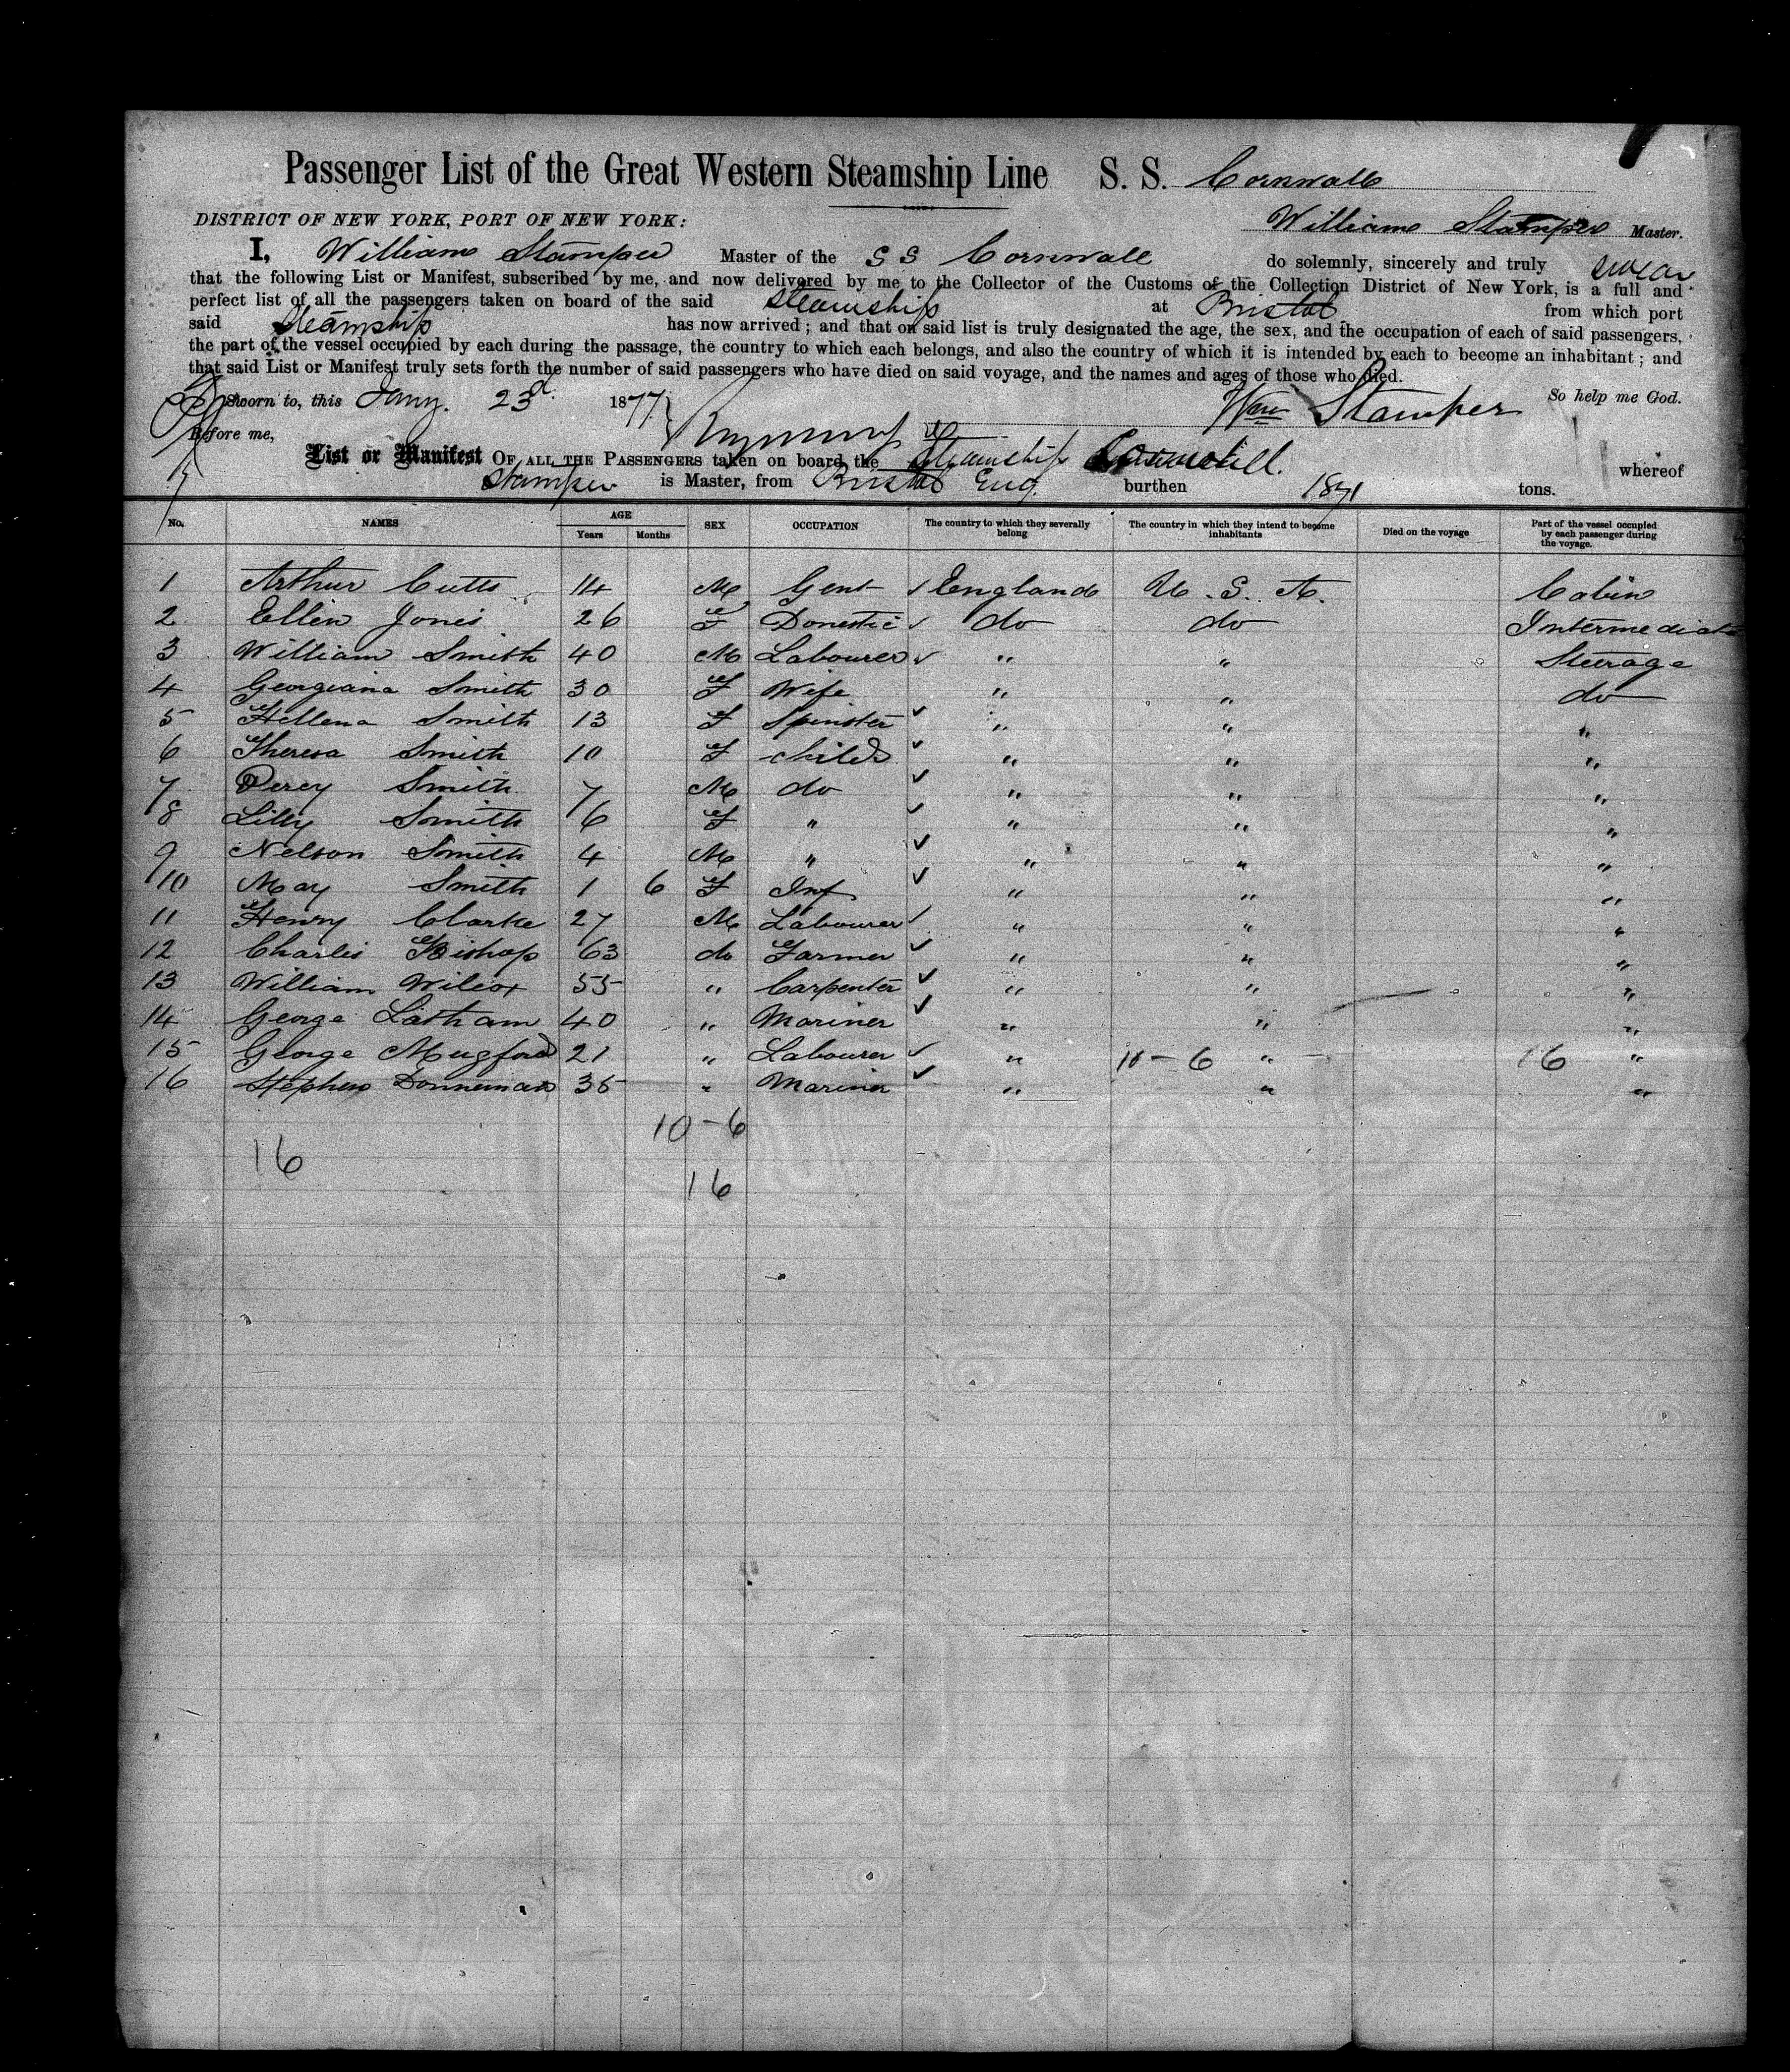 Passenger List of the Great Western Steamship Line S. S. Cornwall
DISTRICT OF NEW YORK, PORT OF NEW YORK: William Stamper Master.
I, William Stamper Master of the S S Cornwall do solemnly, sincerely and truly swear
that the following List or Manifest, subscribed by me, and now delivered by me to the Collector of the Customs of the Collection District of New York, is a full and
perfect list of all the passengers taken on board of the said Steamship at Bristol from which port
said Steamship has now arrived; and that on said list is truly designated the age, the sex, and the occupation of each of said passengers,
the part of the vessel occupied by each during the passage, the country to which each belongs, and also the country of which it is intended by each to become an inhabitant; and
that said List or Manifest truly sets forth the number of said passengers who have died on said voyage, and the names and ages of those who died.
Sworn to, this Jany. 23d. 1877 Wm Stamper So help me God.
Before me,
List or Manifest OF ALL THE PASSENGERS taken on board the Steamship Cornwall. whereof
Stamper is Master, from Bristol Eng. burthen 1871 tons.
No. NAMES AGE Years Months SEX OCCUPATION The country to which they severally belong The country in which they intend to become inhabitants Died on the voyage Part of the vessel occupied by each passenger during the voyage.
1 Arthur Cutts 14 M Gent ✓ England U. S. A. Cabin
2 Ellen Jones 26 F Domestic ✓ do do Intermediate
3 William Smith 40 M Labourer ✓ " " Steerage
4 Georgiana Smith 30 F Wife " " do
5 Hellena Smith 13 F Spinster ✓ " " "
6 Theresa Smith 10 F child ✓ " " "
7 Percy Smith 7 M do ✓ " " "
8 Lilly Smith 6 F " ✓ " " "
9 Nelson Smith 4 M " ✓ " " "
10 May Smith 1 6 F Inf ✓ " " "
11 Henry Clarke 27 M Labourer ✓ " " "
12 Charles Bishop 63 do Farmer ✓ " " "
13 William Wilcox 55 " Carpenter ✓ " " "
14 George Latham 40 " Mariner ✓ " " "
15 George Mugford 21 " Labourer ✓ " 10-6 " 16 "
16 Stephen 35 " Mariner ✓ " " "
10-6
16
16